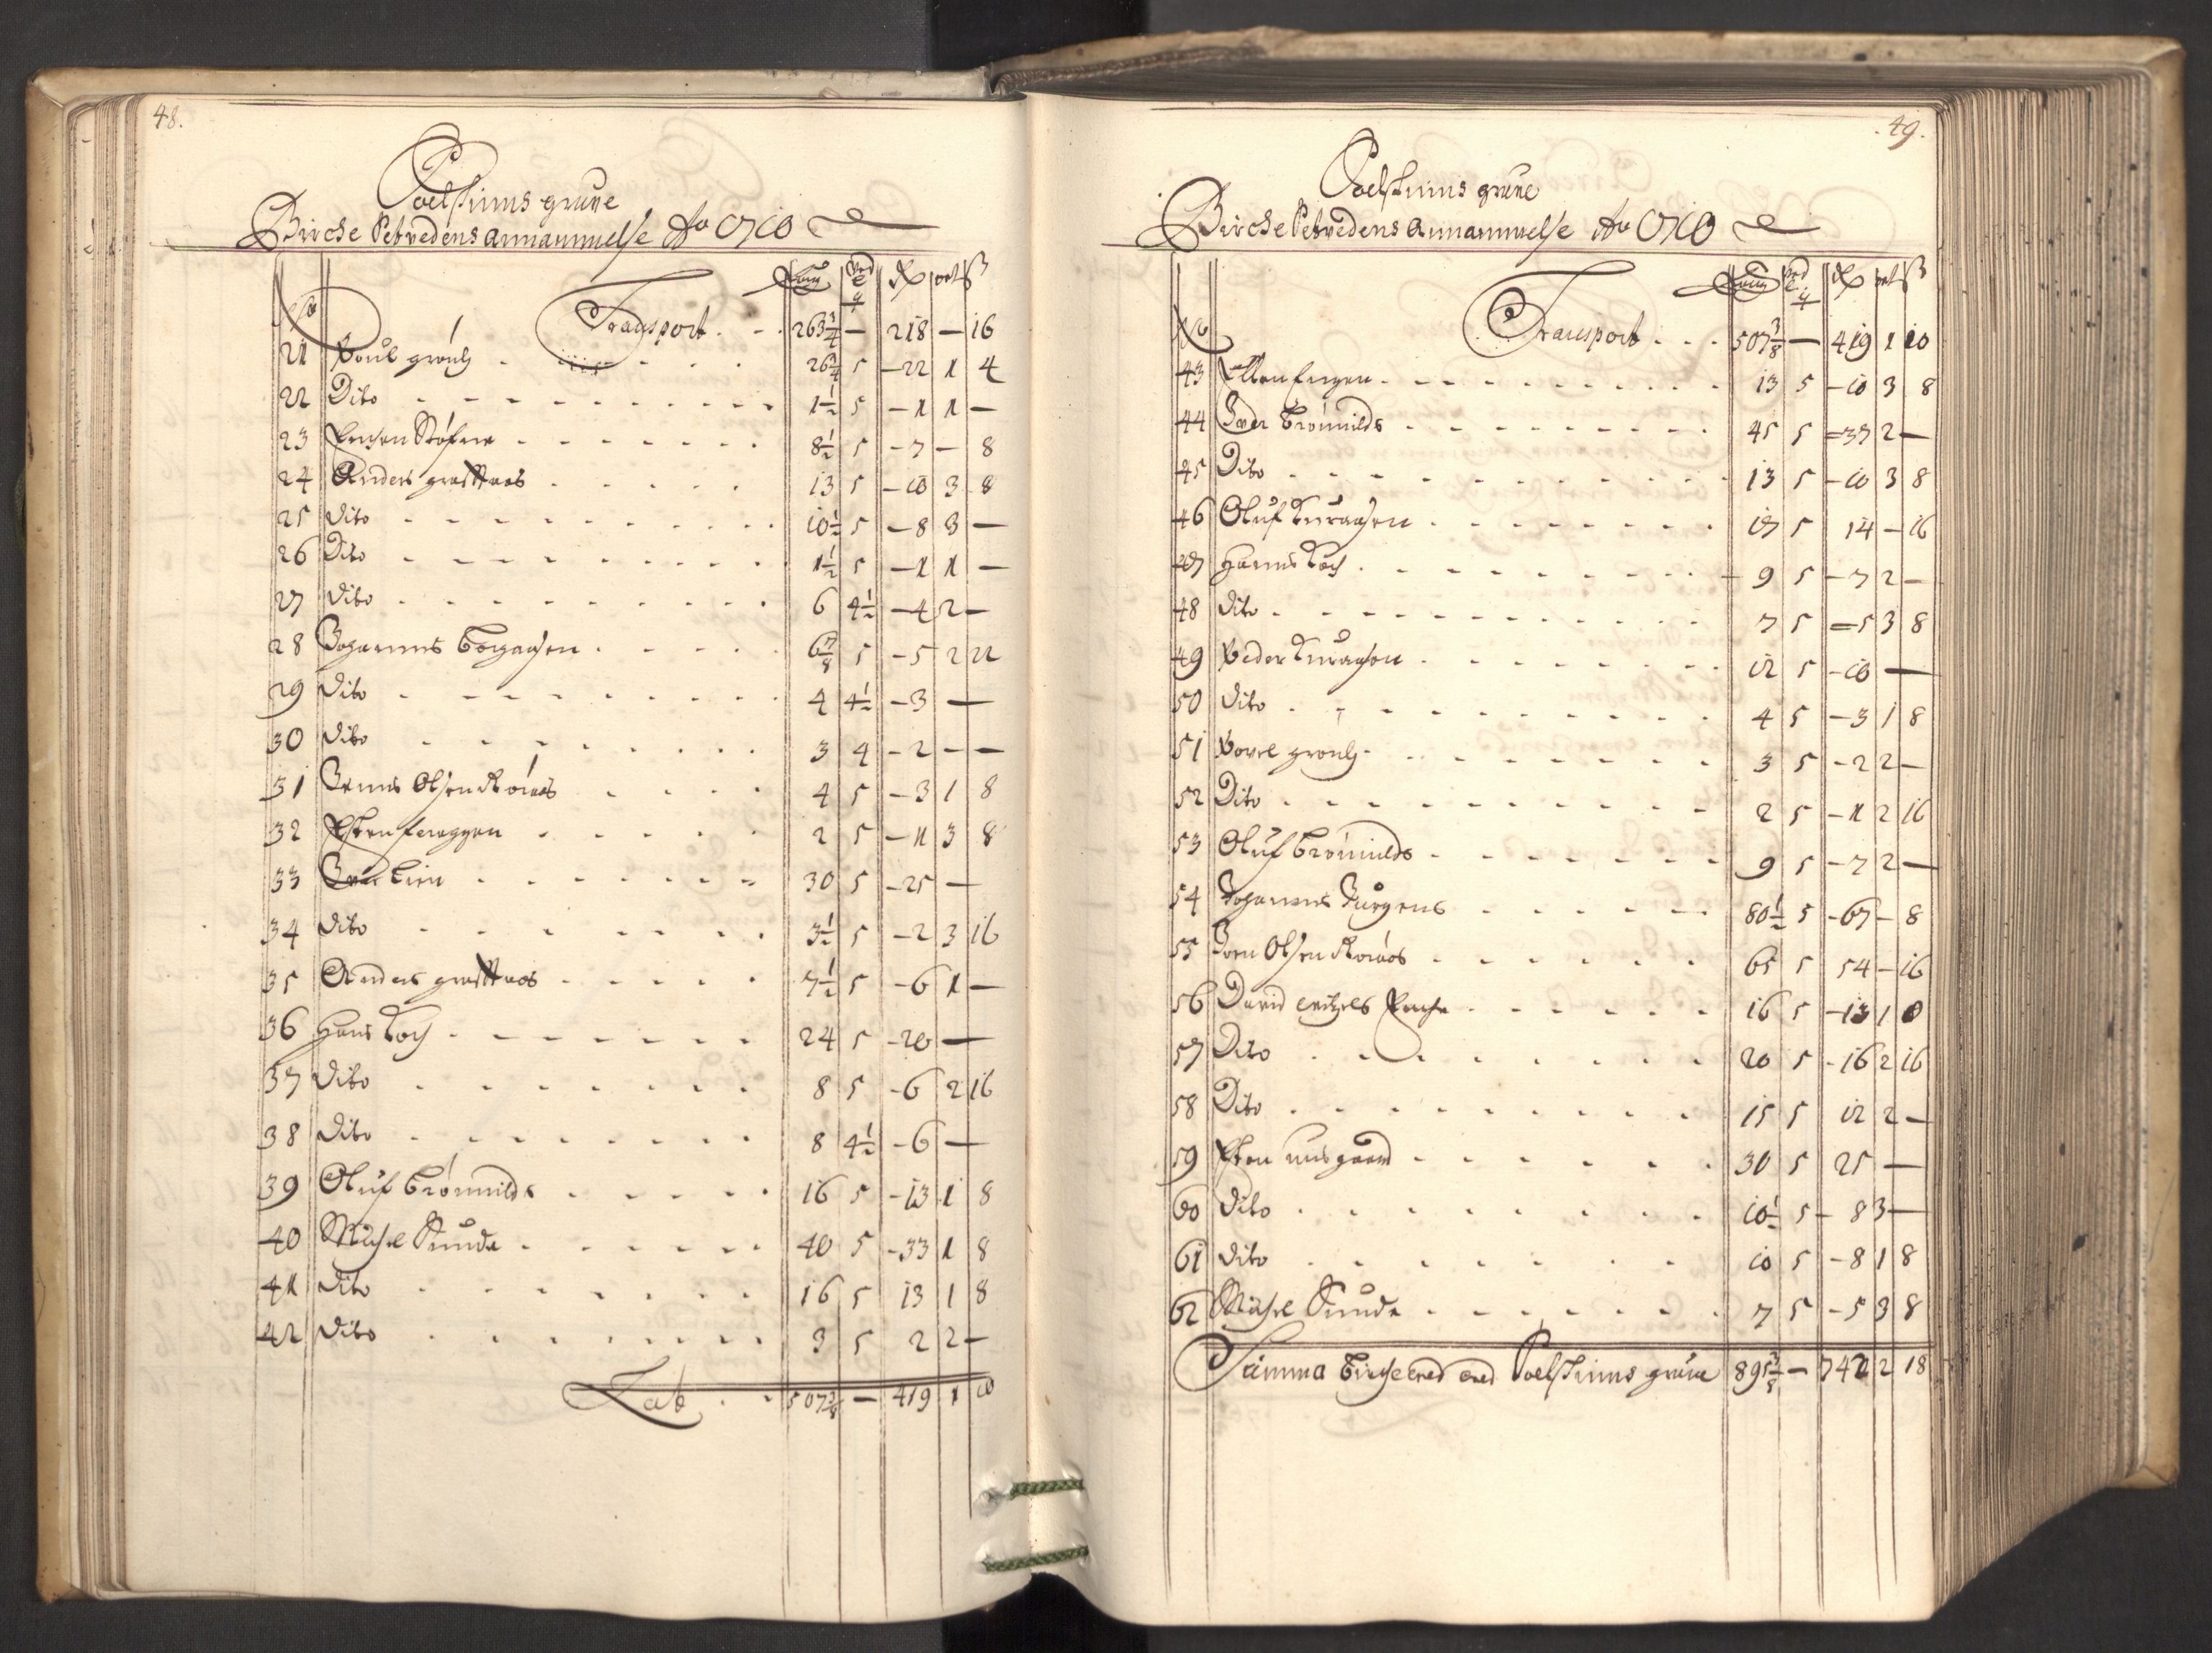 48.
Poelstinns grune
Bircke Setvedens annammelse Ao 1710
No Transport 263 3/4 — 218 — 16
21 Poul gronly 26 3/4 5 - 22 1 4
22 Dito 1 1/2 5 - 1 1 —
23 8 1/2 5 - 7 — 8
24 Anders graftaas 13 5 - 10 3 8
25 Dito 10 1/2 5 - 8 3 —
26 Dito 1 1/2 5 - 1 1 —
27 Dito 6 4 1/2 - 4 2 —
28 Johannes 6 7/8 5 - 5 2 22
29 Dito 4 4 1/2 - 3 —
30 Dito 3 4 - 2 - —
31 Olsen Röraas 4 5 - 3 1 8
32 Esten 2 5 - 1 3 8
33 Iver Lien 30 5 - 25 —
34 Dito 3 1/2 5 - 2 3 16
35 Anders graftaas 7 1/2 5 - 6 1 —
36 Hans Koch 24 5 - 20 —
37 Dito 8 5 - 6 2 16
38 Dito 8 4 1/2 - 6 —
39 Oluf Trönnilds 16 5 - 13 1 8
40 Michel Sunde 40 5 - 33 1 8
41 Dito 16 5 13 1 8
42 Dito 3 5 2 2 —
Lat 507 3/8 — 419 1 10
49.
Poelstinns grune
Bircke Setvedens Annammelse Ao 1710
No Transport 507 3/8 — 419 1 10
43 Ellen Engen 13 5 - 10 3 8
44 Iver Trönnilds 45 5 = 37 2 —
45 Dito 13 5 - 10 3 8
46 Oluf Kuraasen 17 5 14 — 16
47 Hanns Koch 9 5 - 7 2 —
48 Dito 7 5 = 5 3 8
49 Peder Kuraasen 12 5 - 10 —
50 Dito 4 5 - 3 1 8
51 Povel gronly 3 5 - 2 2 —
52 Dito 2 5 - 1 2 16
53 Oluf Trönnilds 9 5 - 7 2 —
54 Johannes Jürgens 80 1/2 5 - 67 - 8
55 Joen Olsen Röraas 65 5 54 — 16
56 David 16 5 - 13 1 8
57 Dito 20 5 - 16 2 16
58 Dito 15 5 12 2 —
59 Esten 30 5 25 —
60 Dito 10 1/2 5 - 8 3 —
61 Dito 10 5 - 8 1 8
62 Michel Sunde 7 5 - 5 3 8
Summa Birckeved ved Poelstinns grune 895 3/8 — 742 2 18